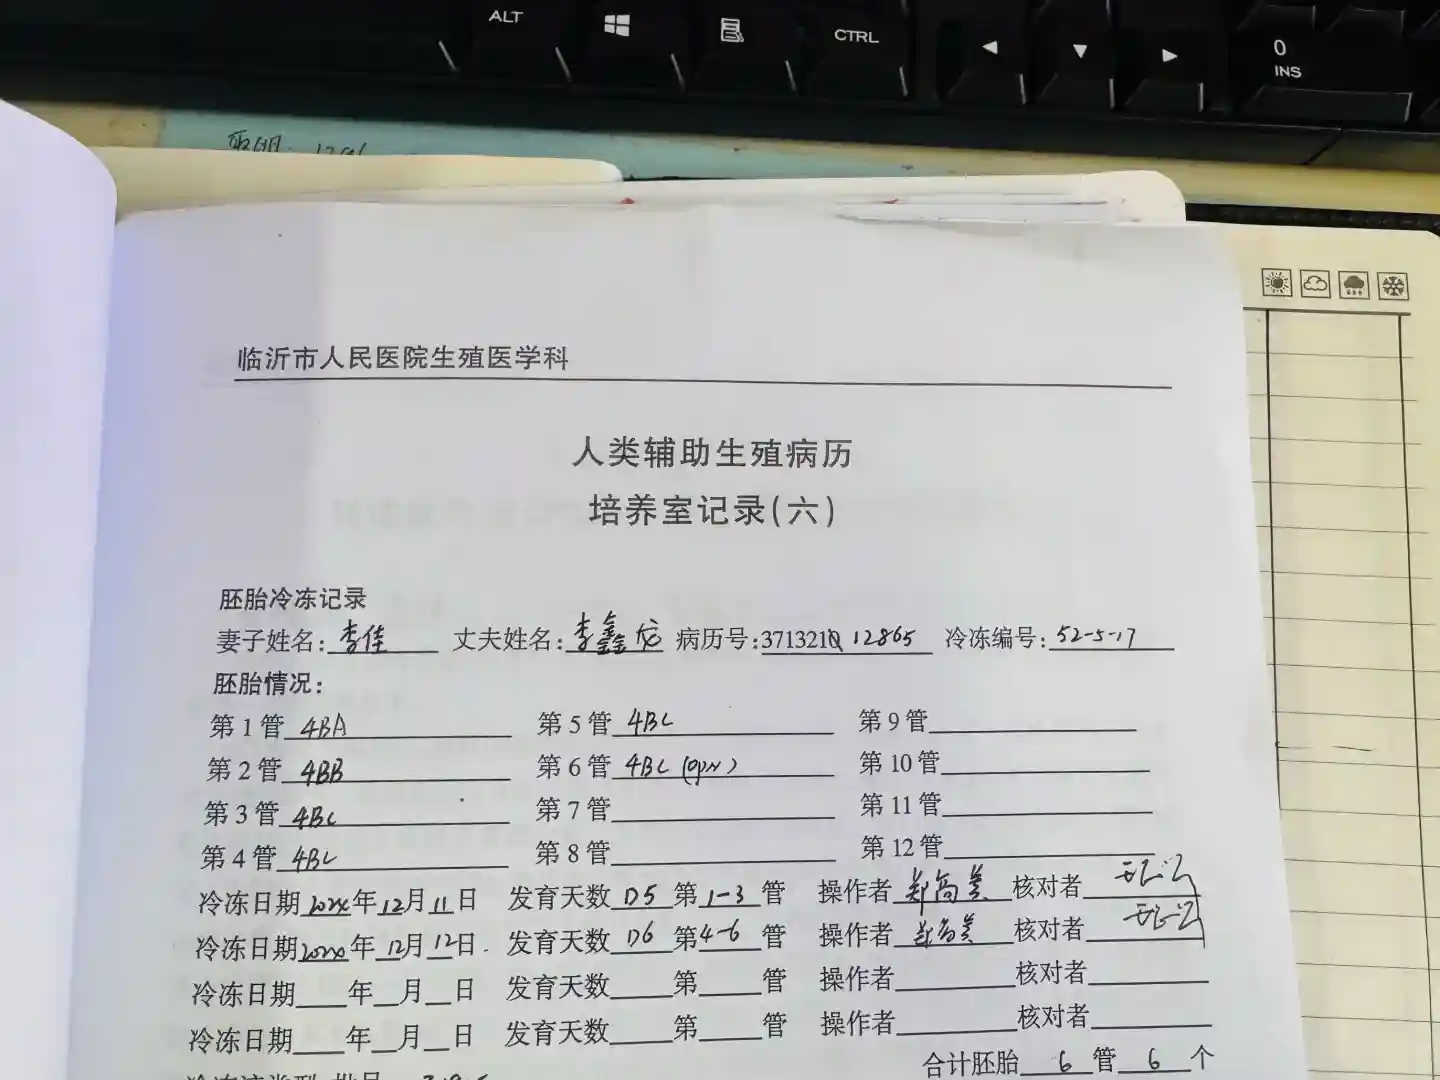 ALT CTRL 0
INS
临沂市人民医院生殖医学科
人类辅助生殖病历
培养室记录(六)
胚胎冷冻记录
妻子姓名: 李佳 丈夫姓名: 李鑫龙 病历号: 3713210 12865 冷冻编号: 52-5-17
胚胎情况:
第1管 4BA 第5管 4BC 第9管
第2管 4BB 第6管 4BC (0PN) 第10管
第3管 4BC 第7管 第11管
第4管 4BC 第8管 第12管
冷冻日期 年 12 月 11 日 发育天数 D5 第 1-3 管 操作者 核对者
冷冻日期 年 12 月 12 日 发育天数 D6 第 4-6 管 操作者 核对者
冷冻日期 年 月 日 发育天数 第 管 操作者 核对者
冷冻日期 年 月 日 发育天数 第 管 操作者 核对者
合计胚胎 6 管 6 个